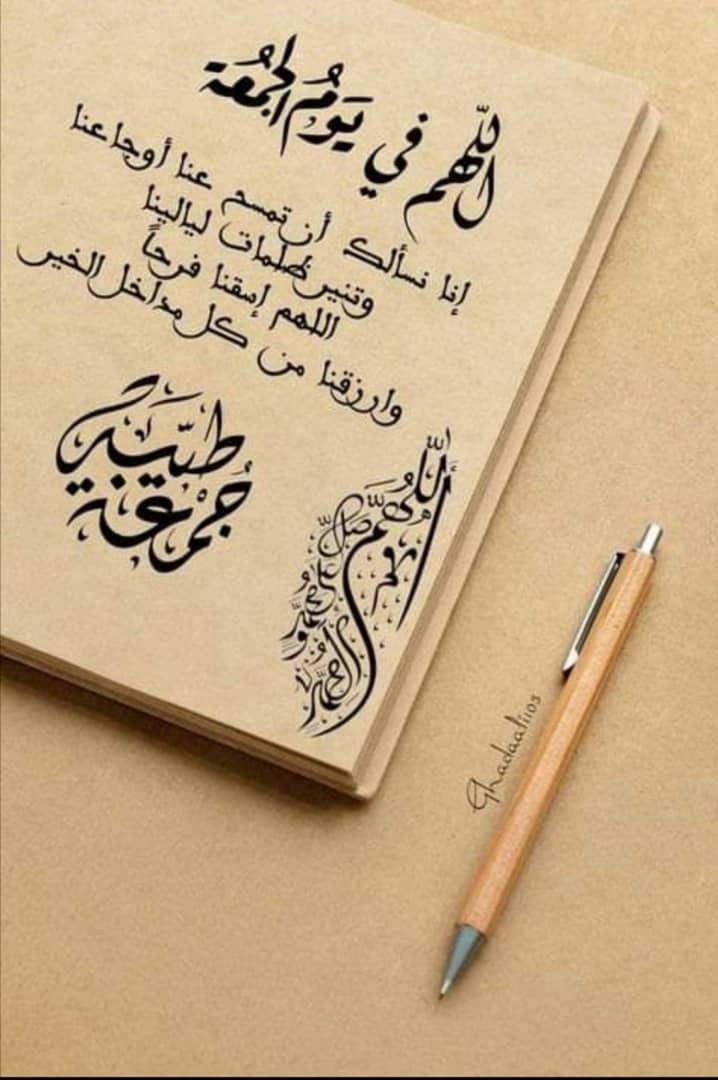 اللّهم في يَومُ الجمُعَة
إنا نسألك أن تمسح عنا أوجاعنا
وتنير ظلمات ليالينا
اللهم إسقنا فرحاً
وارزقنا من كل مداخل الخير
جُمعَة
طيّبَة
اللَّهُمَّ صَلِّ على محمد و
آل محمد
Ghadaali103